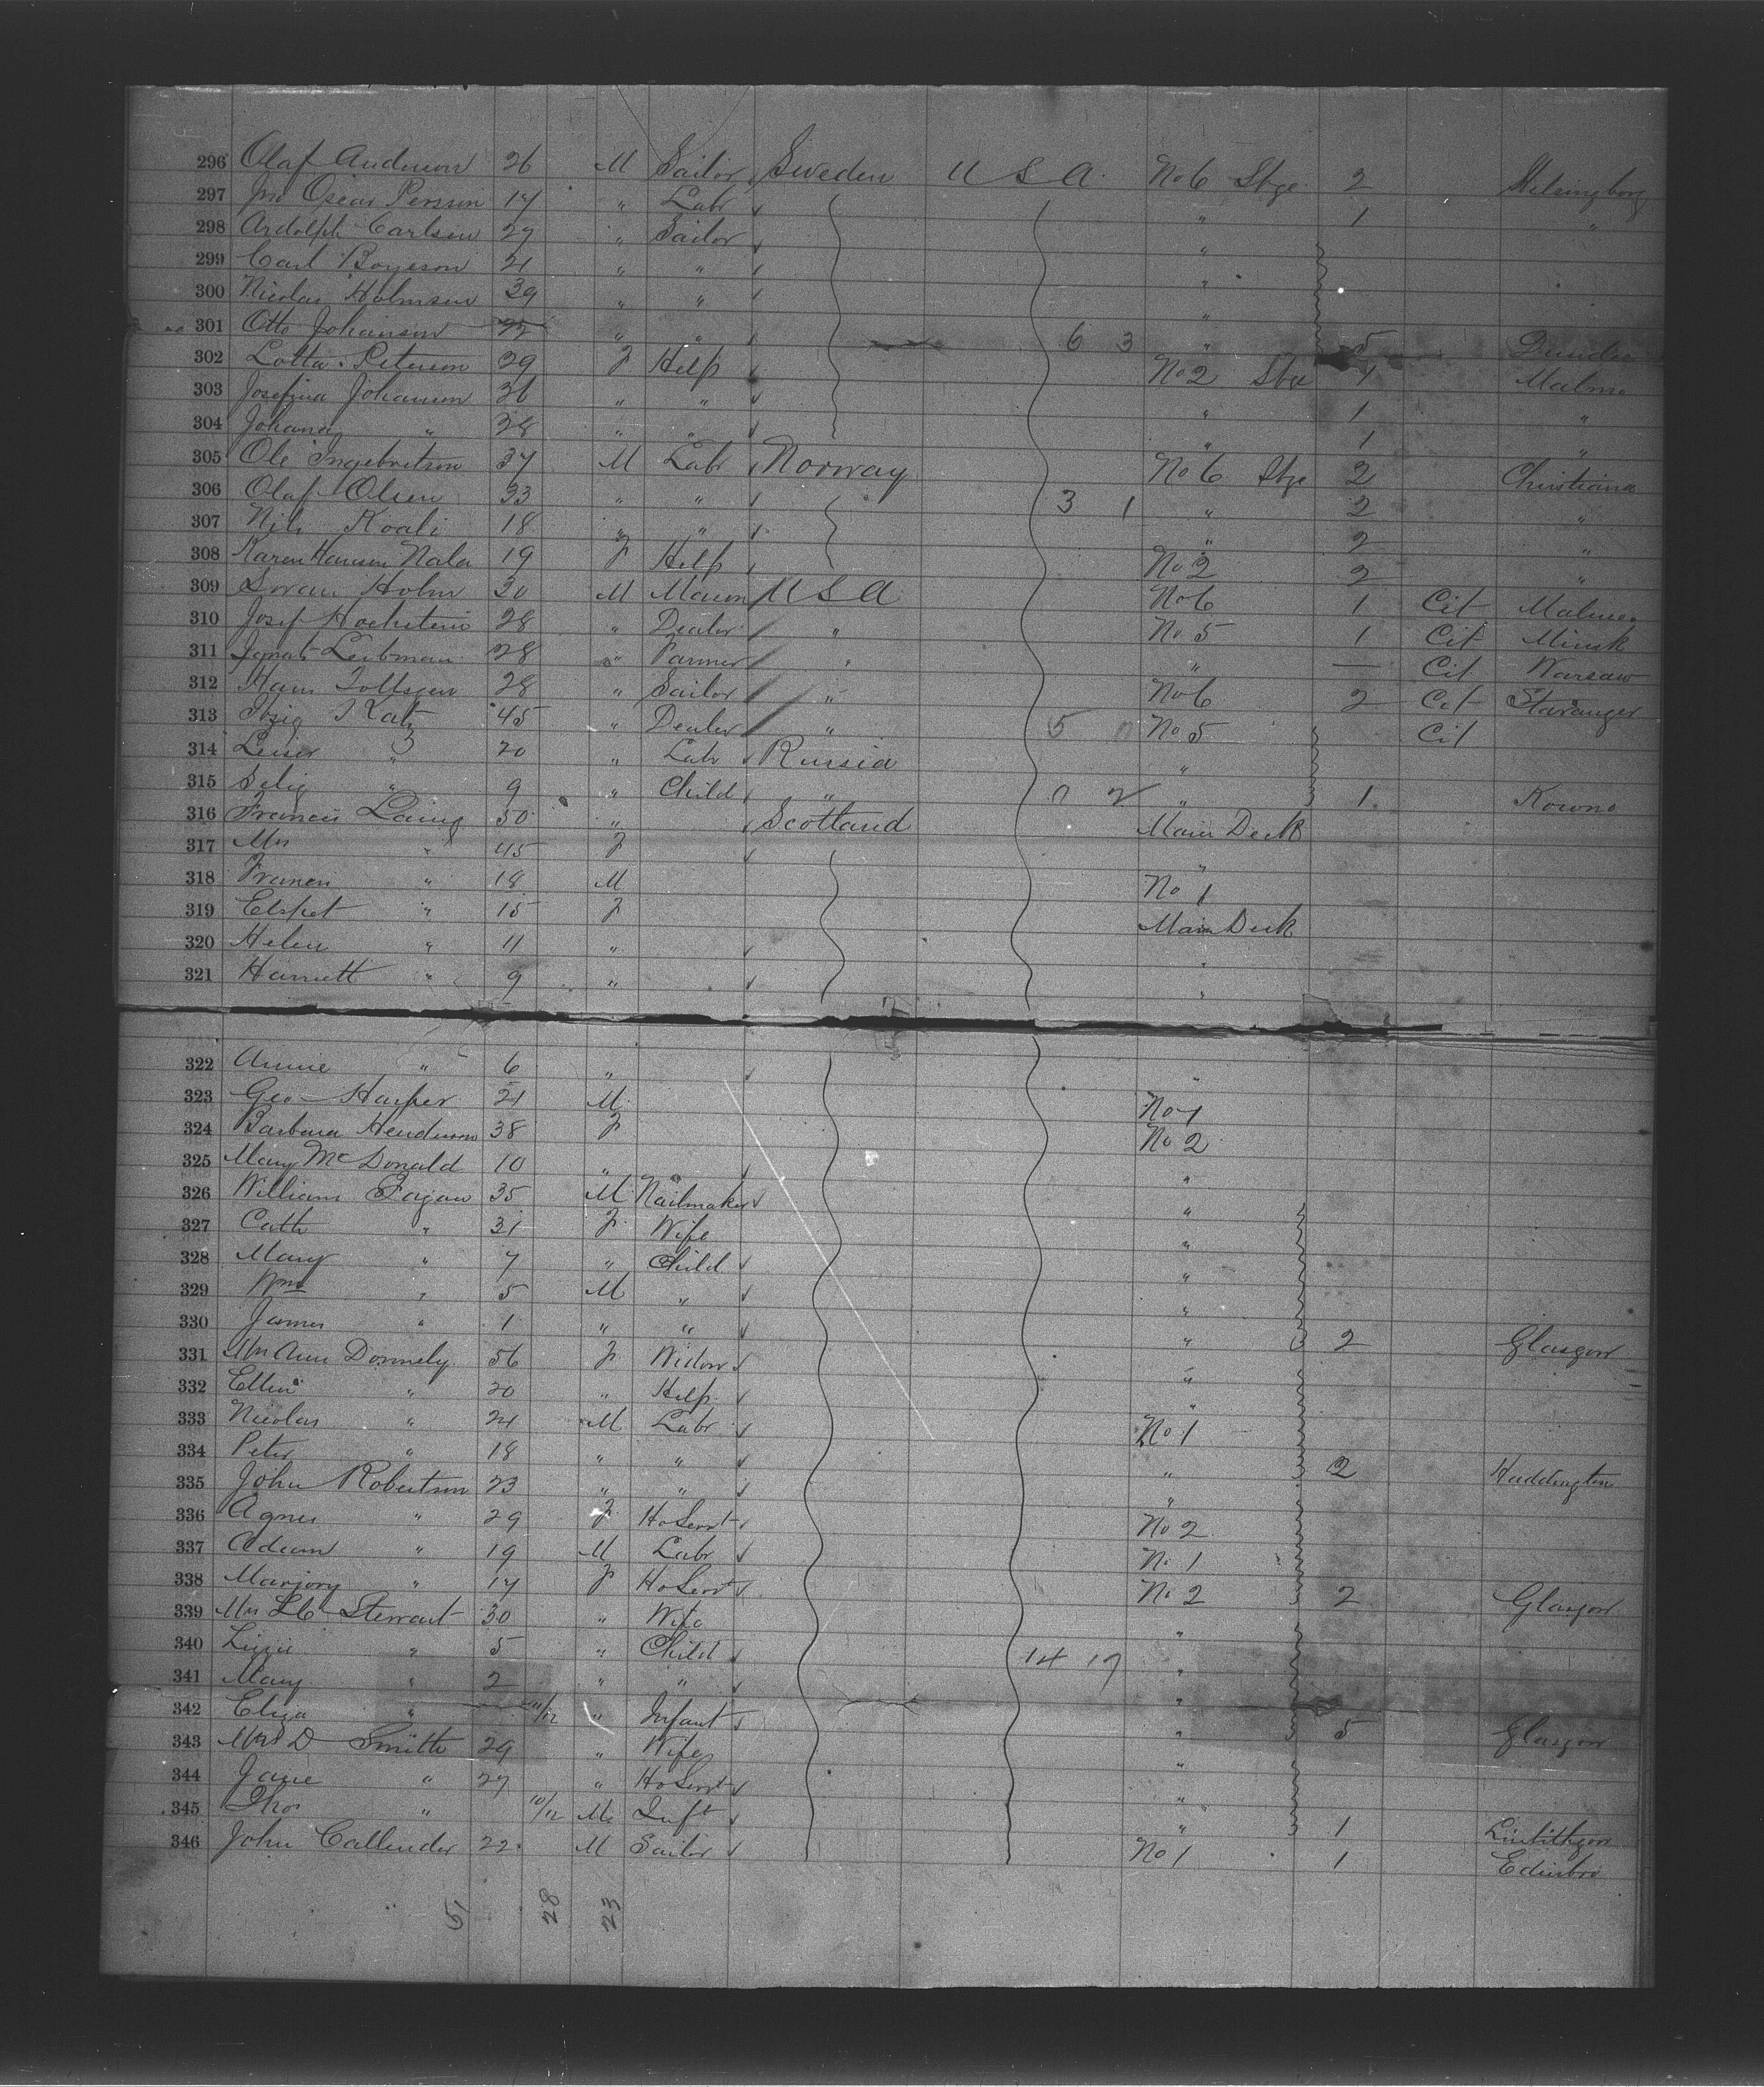 296 Olaf Anderson 26 M Sailor Sweden U S A. No 6 Stge 2 Helsingborg
297 Jno Oscar Persson 17 " Labr " 1 "
298 Ardolph Carlson 27 " Sailor "
299 Carl Boyeson 21 " " "
300 Nicolas Holmsen 39 " " "
301 Otto Johanson 22 " " 6 3 " 5 Dundee
302 Lotta Peterson 29 F Help No 2 Stge 1 Malmo
303 Josefina Johanson 36 " " " 1 "
304 Johana " 28 " " " 1 "
305 Ole Ingebretson 37 M Labr Norway No 6 Stge 2 Christiana
306 Olaf Olsen 33 " " 3 1 " 2 "
307 Nils Koali 18 " " " 2 "
308 Karen Hansen Nala 19 F Help No 2 2 "
309 Soran Holm 30 M Mason U S A No 6 1 Cit Malmo
310 Josef Hochstein 28 " Dealer " No 5 1 Cit Minsk
311 Ignatz Leibman 28 " Farmer " " — Cit Warsaw
312 Hans 28 " Sailor " No 6 2 Cit Stavanger
313 Katz 45 " Dealer " 5 0 No 5 Cit
314 Leiser " 20 " Labr Russia "
315 Selig " 9 " Child " 0 2 " 1 Kowno
316 Francis Laing 50 " Scotland Main Deck
317 Mrs " 45 F "
318 Francis " 18 M No 1
319 Elspet " 15 F Main Deck
320 Helen " 11 " "
321 Harriett " 9 " "
322 Annie " 6 " "
323 Geo Harper 21 M No 1
324 Barbara Henderson 38 F No 2
325 Mary McDonald 10 " "
326 William Fagan 35 M Nailmaker "
327 Cath " 31 F Wife "
328 Mary " 7 " Child "
329 Wm " 5 M " "
330 James " 1 " " " 2 Glasgow
331 Mrs Ann Donnely 56 F Widow "
332 Ellen " 20 " Help "
333 Nicolas " 24 M Labr No 1
334 Peter " 18 " " " 2 Haddington
335 John Robertson 23 " " "
336 Agnes " 29 F Ho Servt No 2
337 Adam " 19 M Labr No 1
338 Marjory " 17 F Ho Servt No 2 2 Glasgow
339 Mrs Stewart 30 " Wife "
340 Lizzie " 5 " Child 14 17 "
341 Mary " 2 " " "
342 Eliza " 11/12 " Infant " 5 Glasgow
343 Mrs D Smith 29 " Wife "
344 Jane " 27 " Ho Servt "
345 Thos " 10/12 M Inft " 1 Linlithgow
346 John Callender 22 M Sailor No 1 1 Edinbro
51 28 23